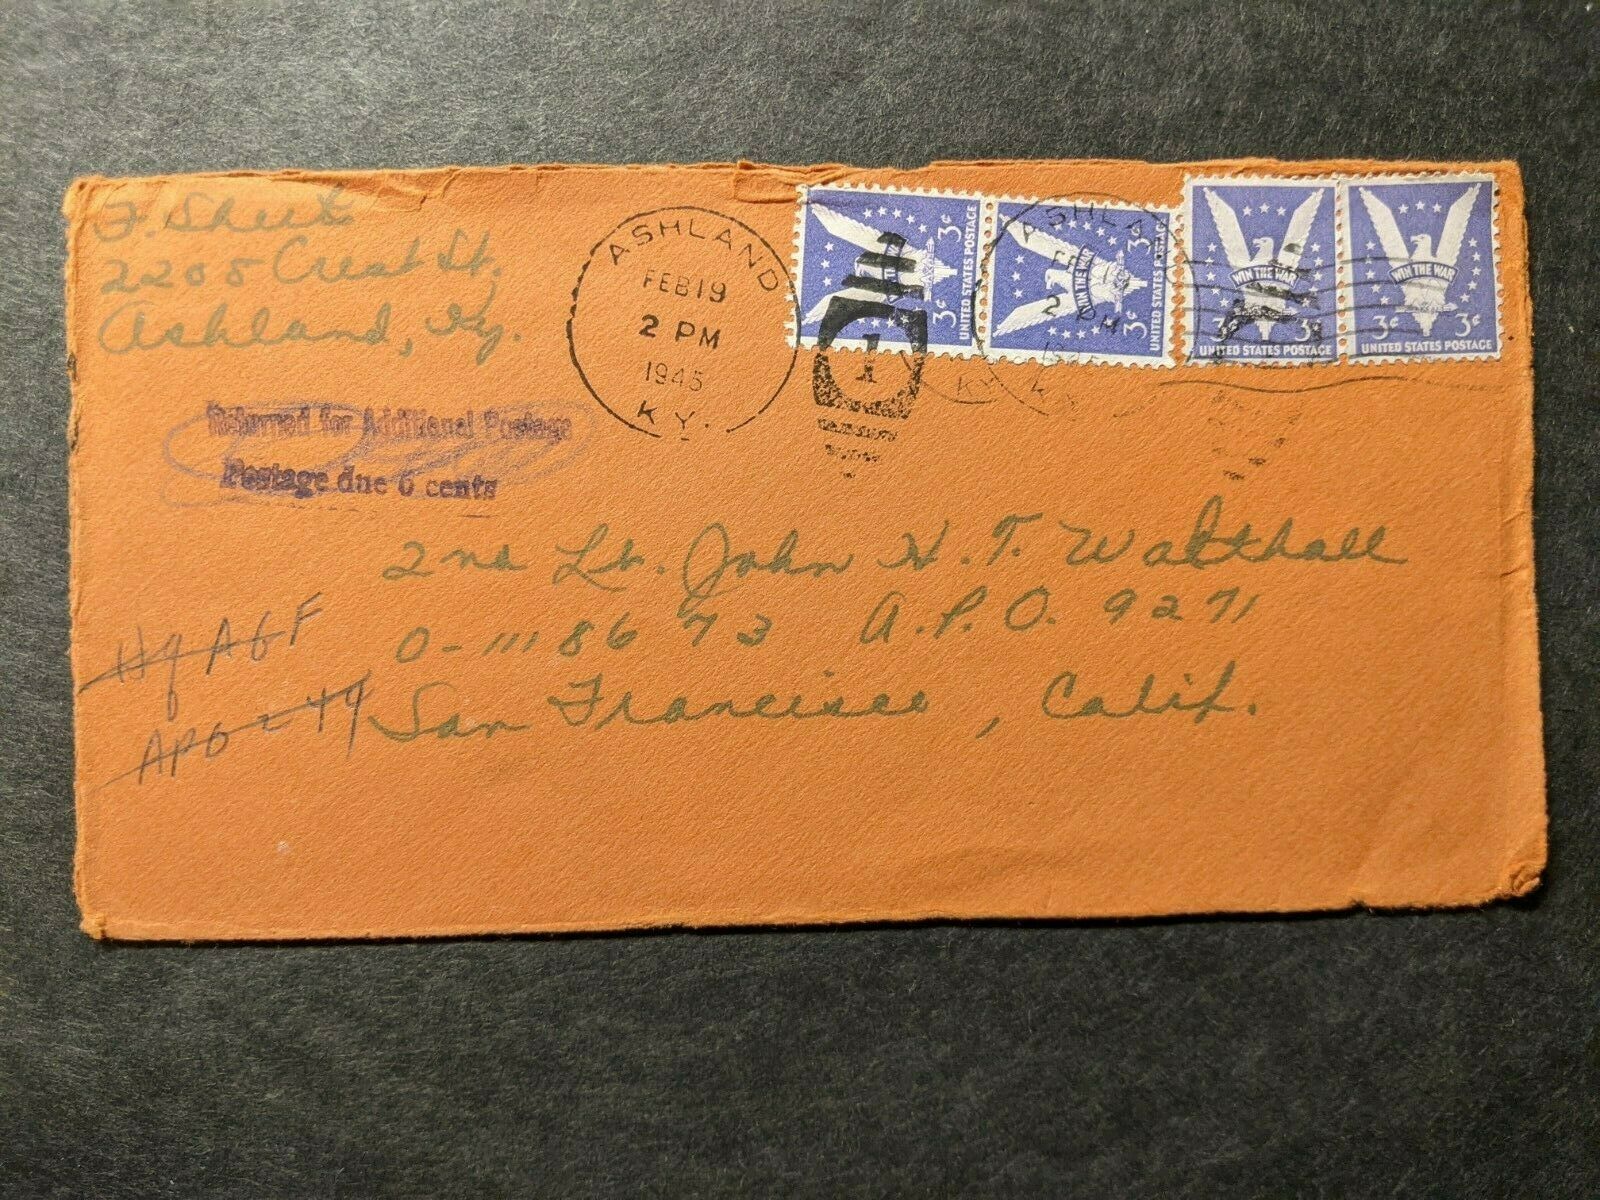 F. Sheets
2208 Crest St.
Ashland, Ky.
ASHLAND
FEB 19
2 PM
1945
KY.
3¢
3¢
UNITED STATES POSTAGE
WIN THE WAR
3¢
3¢
UNITED STATES POSTAGE
WIN THE WAR
3¢ 3¢
UNITED STATES POSTAGE
WIN THE WAR
3¢ 3¢
UNITED STATES POSTAGE
ASHLA
FEB 19
2 PM
1945
KY
1
Returned for Additional Postage
Postage due 6 cents
2nd Lt. John H. T. Walthall
O-1118673 A.P.O. 9271
San Francisco, Calif.
Hq AGF
APO 249